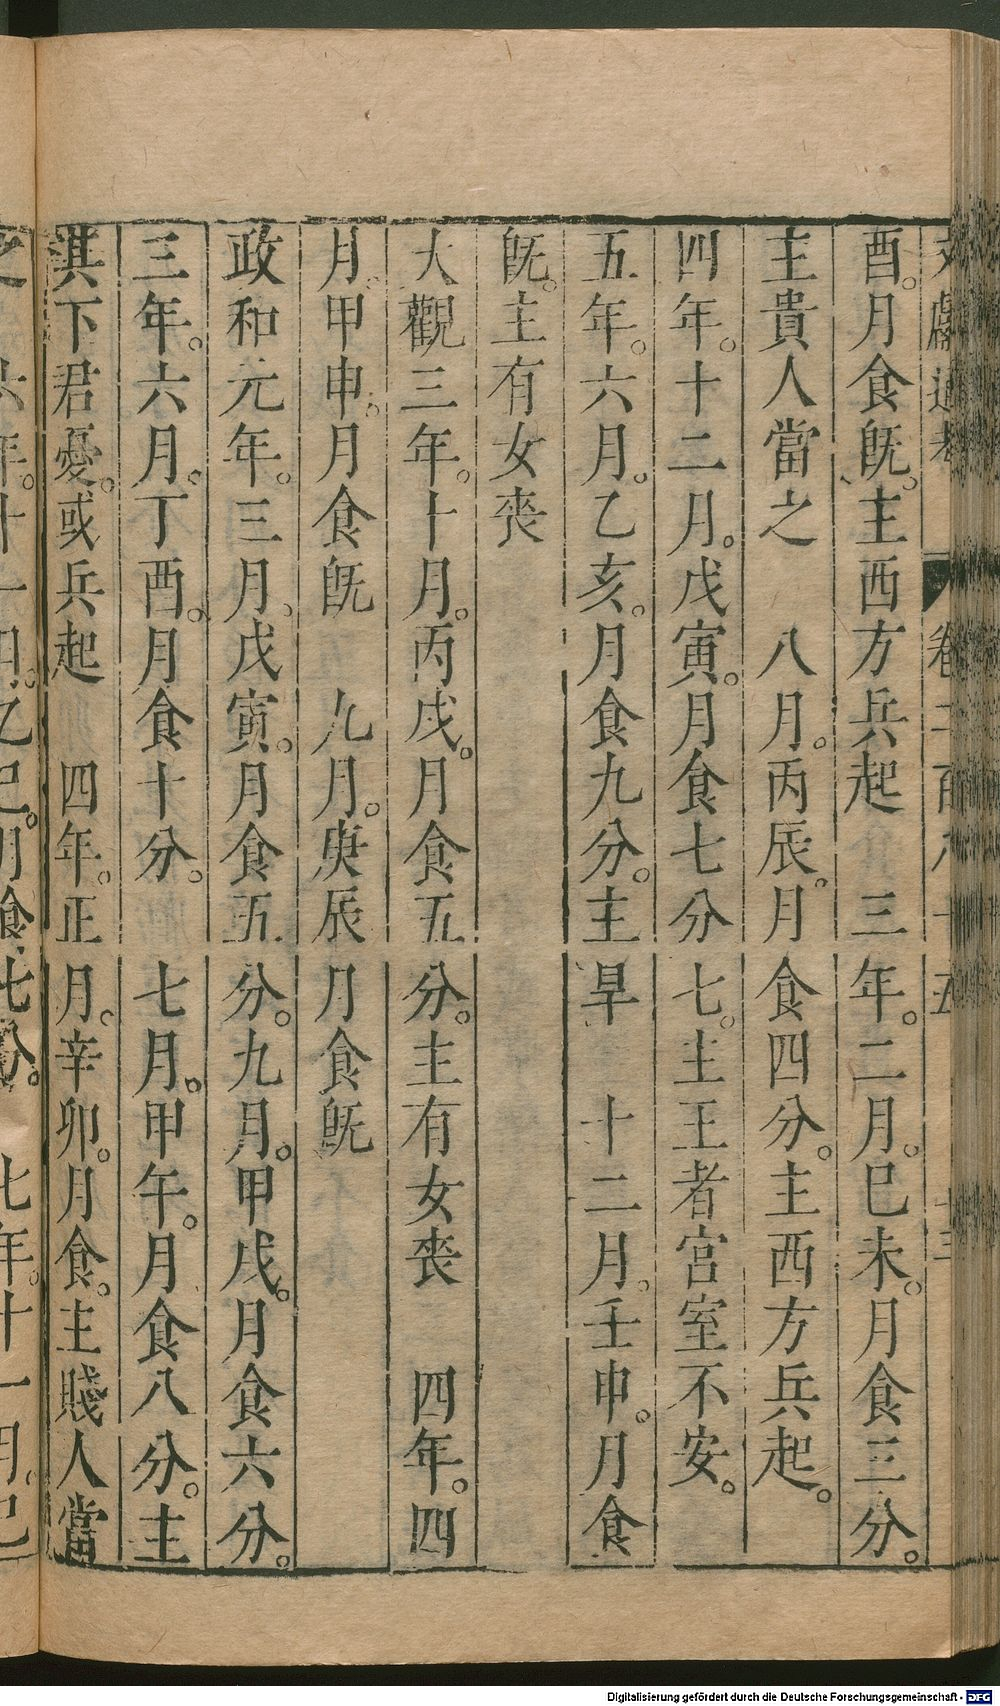 酉。月食既。主西方兵起　三年。二月。己未。月食三分。
主貴人當之　八月。丙辰。月食四分。主西方兵起。
四年。十二月。戊寅。月食七分七。主王者宮室不安。
五年。六月。乙亥。月食九分。主旱　十二月。壬申。月食
既。主有女喪
大觀三年。十月。丙戌。月食五分。主有女喪　四年。四
月。甲申。月食既　九月。庚辰月食既
政和元年。三月。戊寅。月食五分。九月。甲戌。月食六分。
三年。六月。丁酉。月食十分。七月。甲午。月食八分。主
其下君憂。或兵起　四年。正月。辛卯。月食。主賤人當
Digitalisierung gefördert durch die Deutsche Forschungsgemeinschaft - DFG